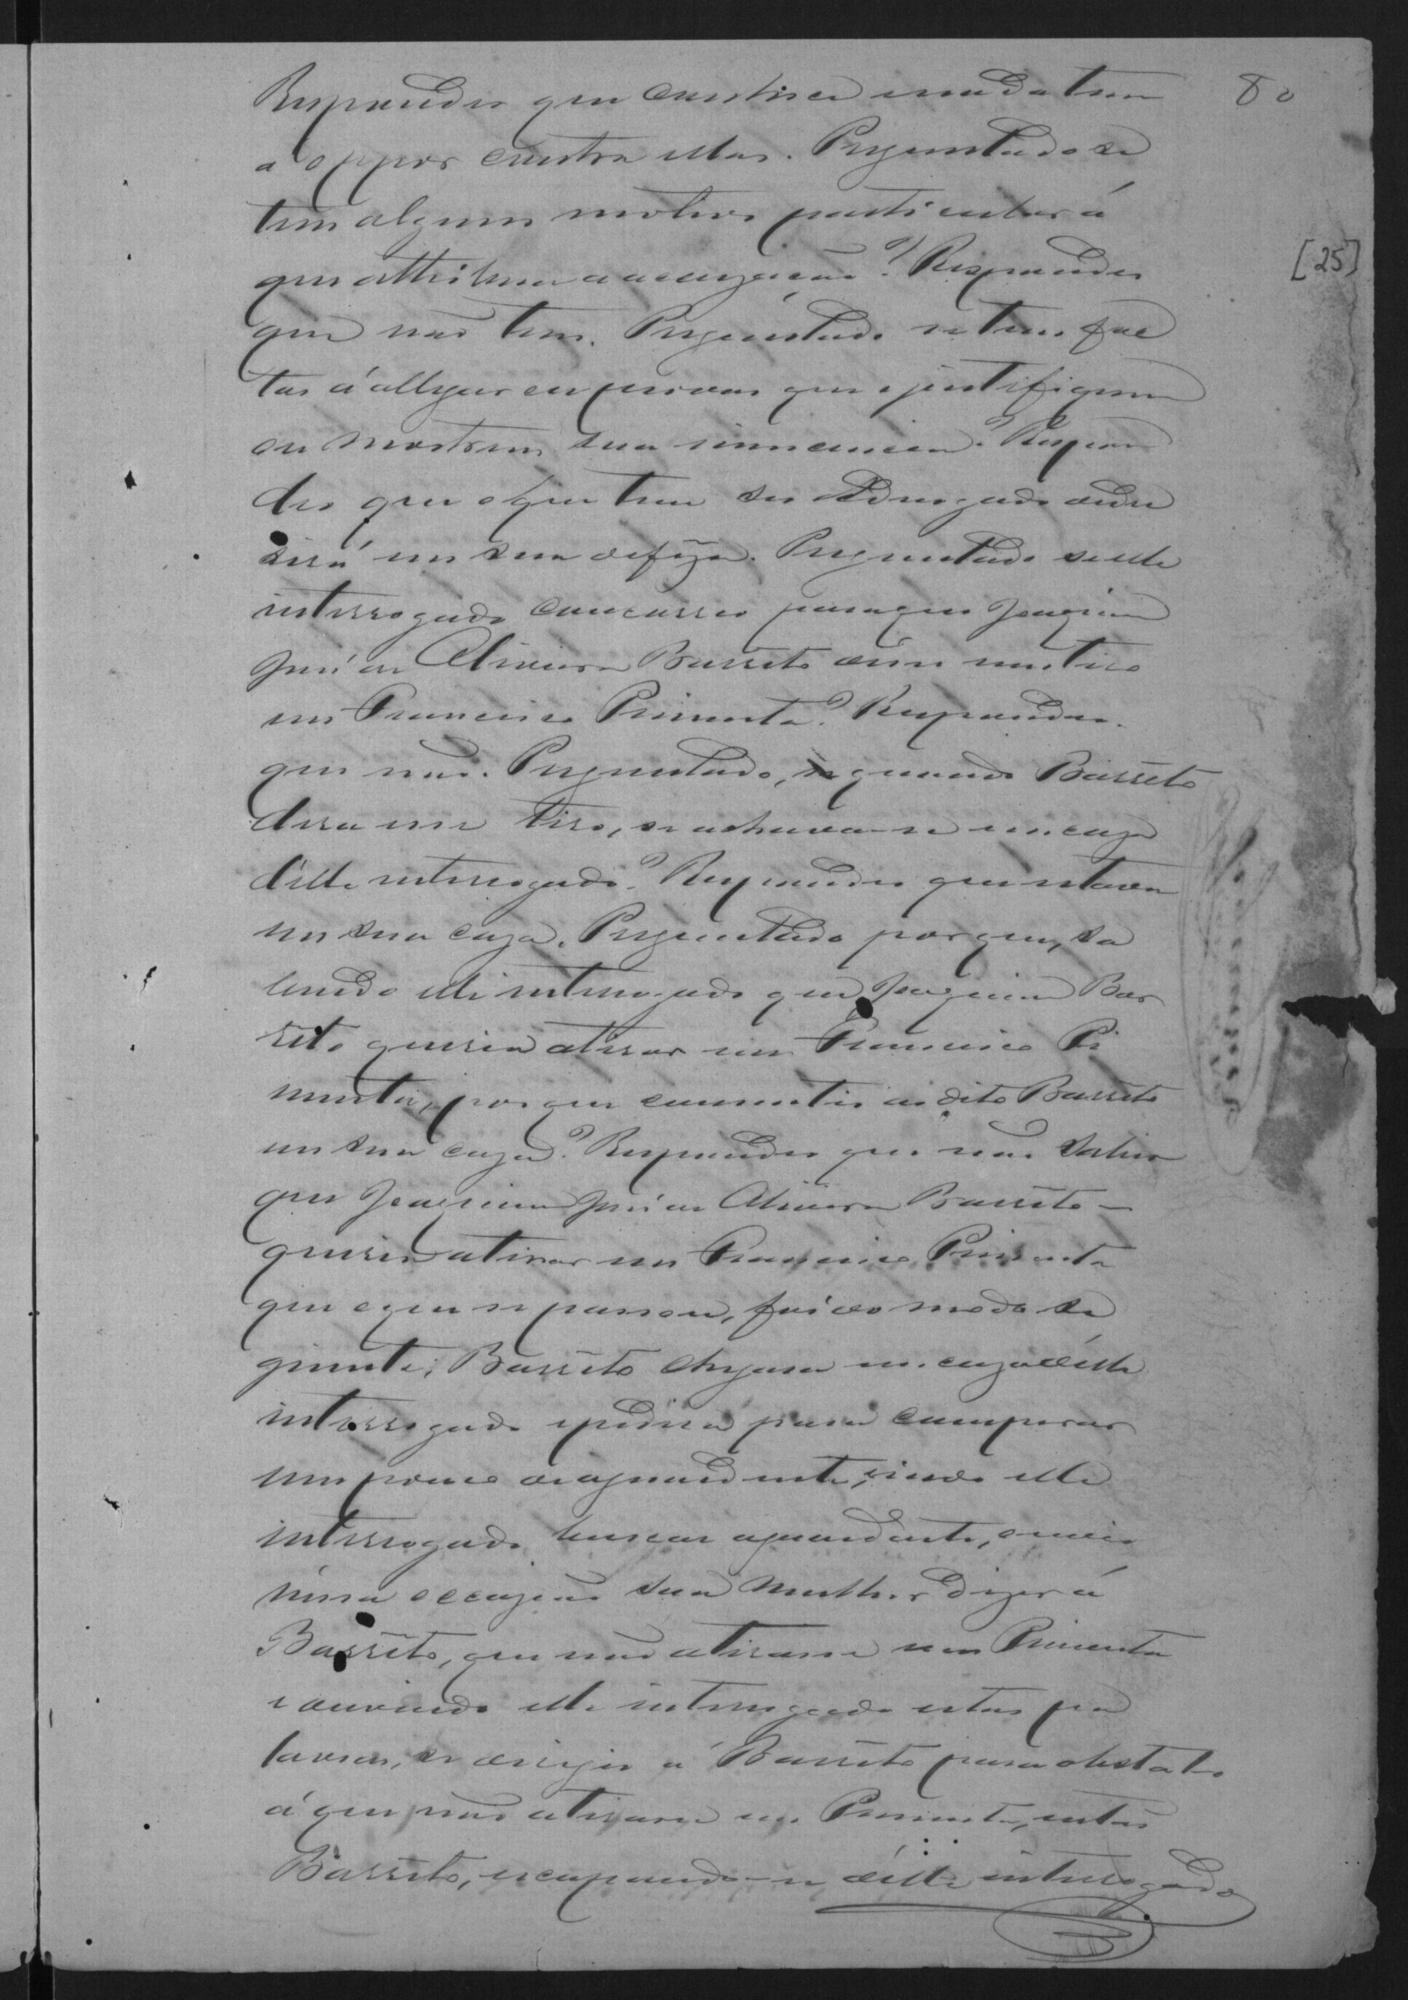 80
Respondeo que conhece e nada tem
a oppor contra ellas. Preguntado se
tem algum motivo particular á
que attribua a accuzação? Respondeo
[25]
que não tem. Preguntado se tem fac
tos á allegar ou provas que o justifiquem
ou mostrem sua innocencia? Respon
deo que o que tem seo Advogado dedu
zirá em sua defeza. Preguntado se elle
interrogado concorreo para que Joaquim
José de Oliveira Barrêto desse um tiro
em Francisco Pimenta? Respondeo
que não. Preguntado, se quando Barrêto
dera um tiro, se achava-se em caza
d'elle interrogado? Respondeo que estava
em sua caza. Preguntado porque, sa
bendo elle interrogado que Joaquim Bar
rêto queria atirar em Francisco Pi
menta, porque consentio o dito Barrêto
em sua caza? Respondeo que não sabia
que Joaquim José de Oliveira Barrêto
queria atirar em Francisco Pimenta
que o que se passou, foi do modo se
guinte: Barrêto chegara em caza d'elle
interrogado e pedira para comprar
um pouco de aguardente, indo elle
interrogado buscar aguardente, ouvio
n'essa occazião sua mulher dizer á
Barrêto, que não atirasse em Pimenta
e ouvindo elle interrogado estas pa
lavras, se dirigio a Barrêto para obstal-o
á que não atirasse em Pimenta, então
Barrêto, escapando-se d'elle interrogado